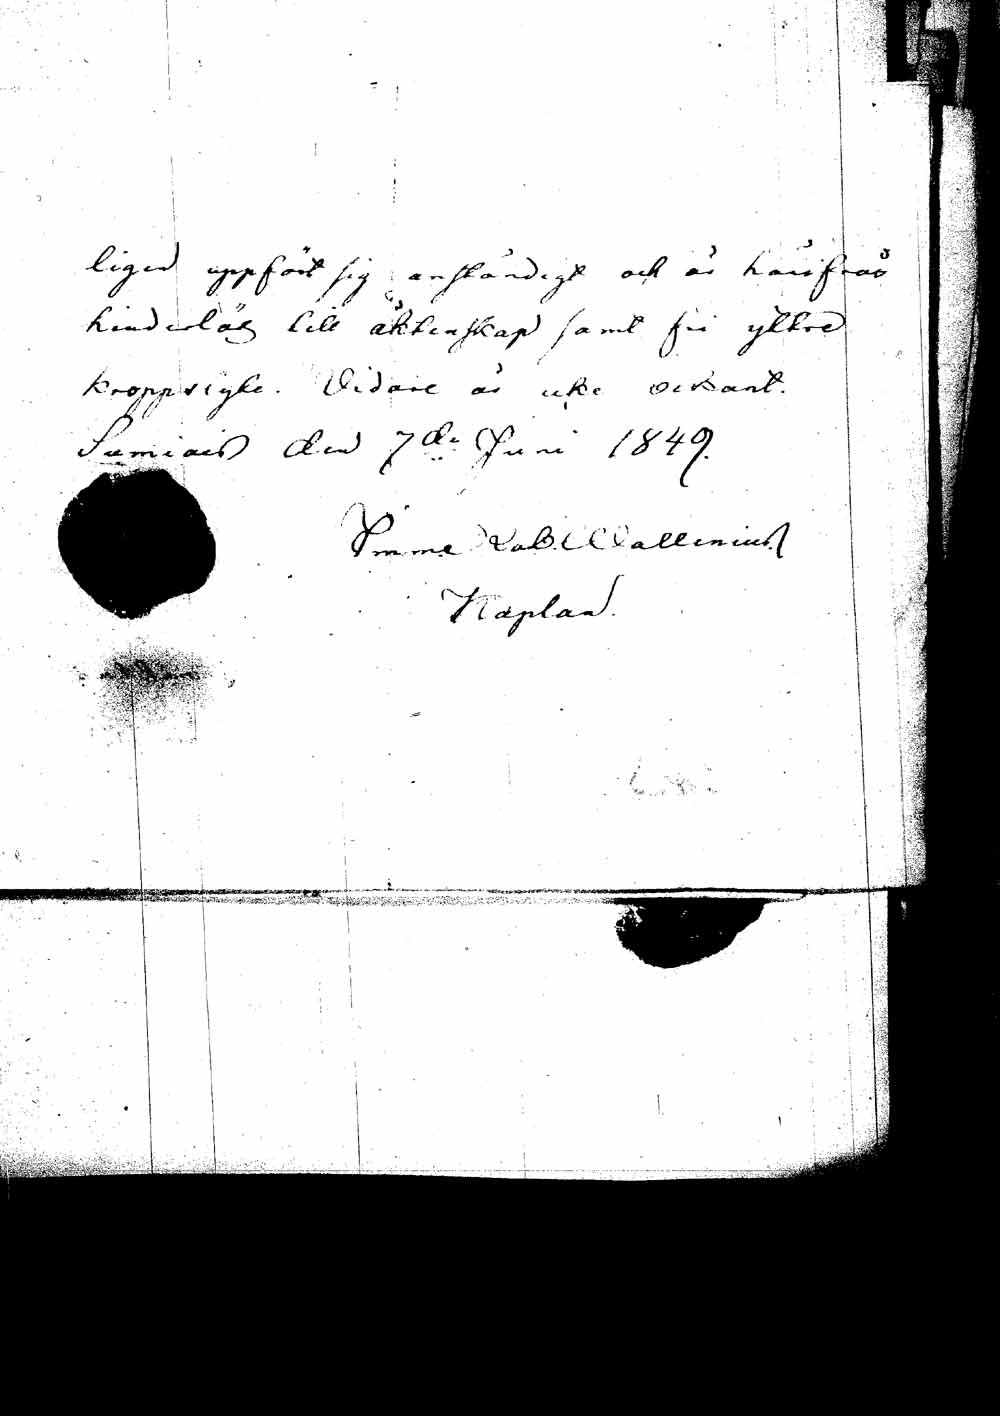 ligen uppfört sig anständigt och är härifrån
hinderlös till äktenskap samt fri yttre
kroppslyte. Vidare är icke bekant.
Sumiais den 7de Juni 1849.
Wallenius
Kaplan.